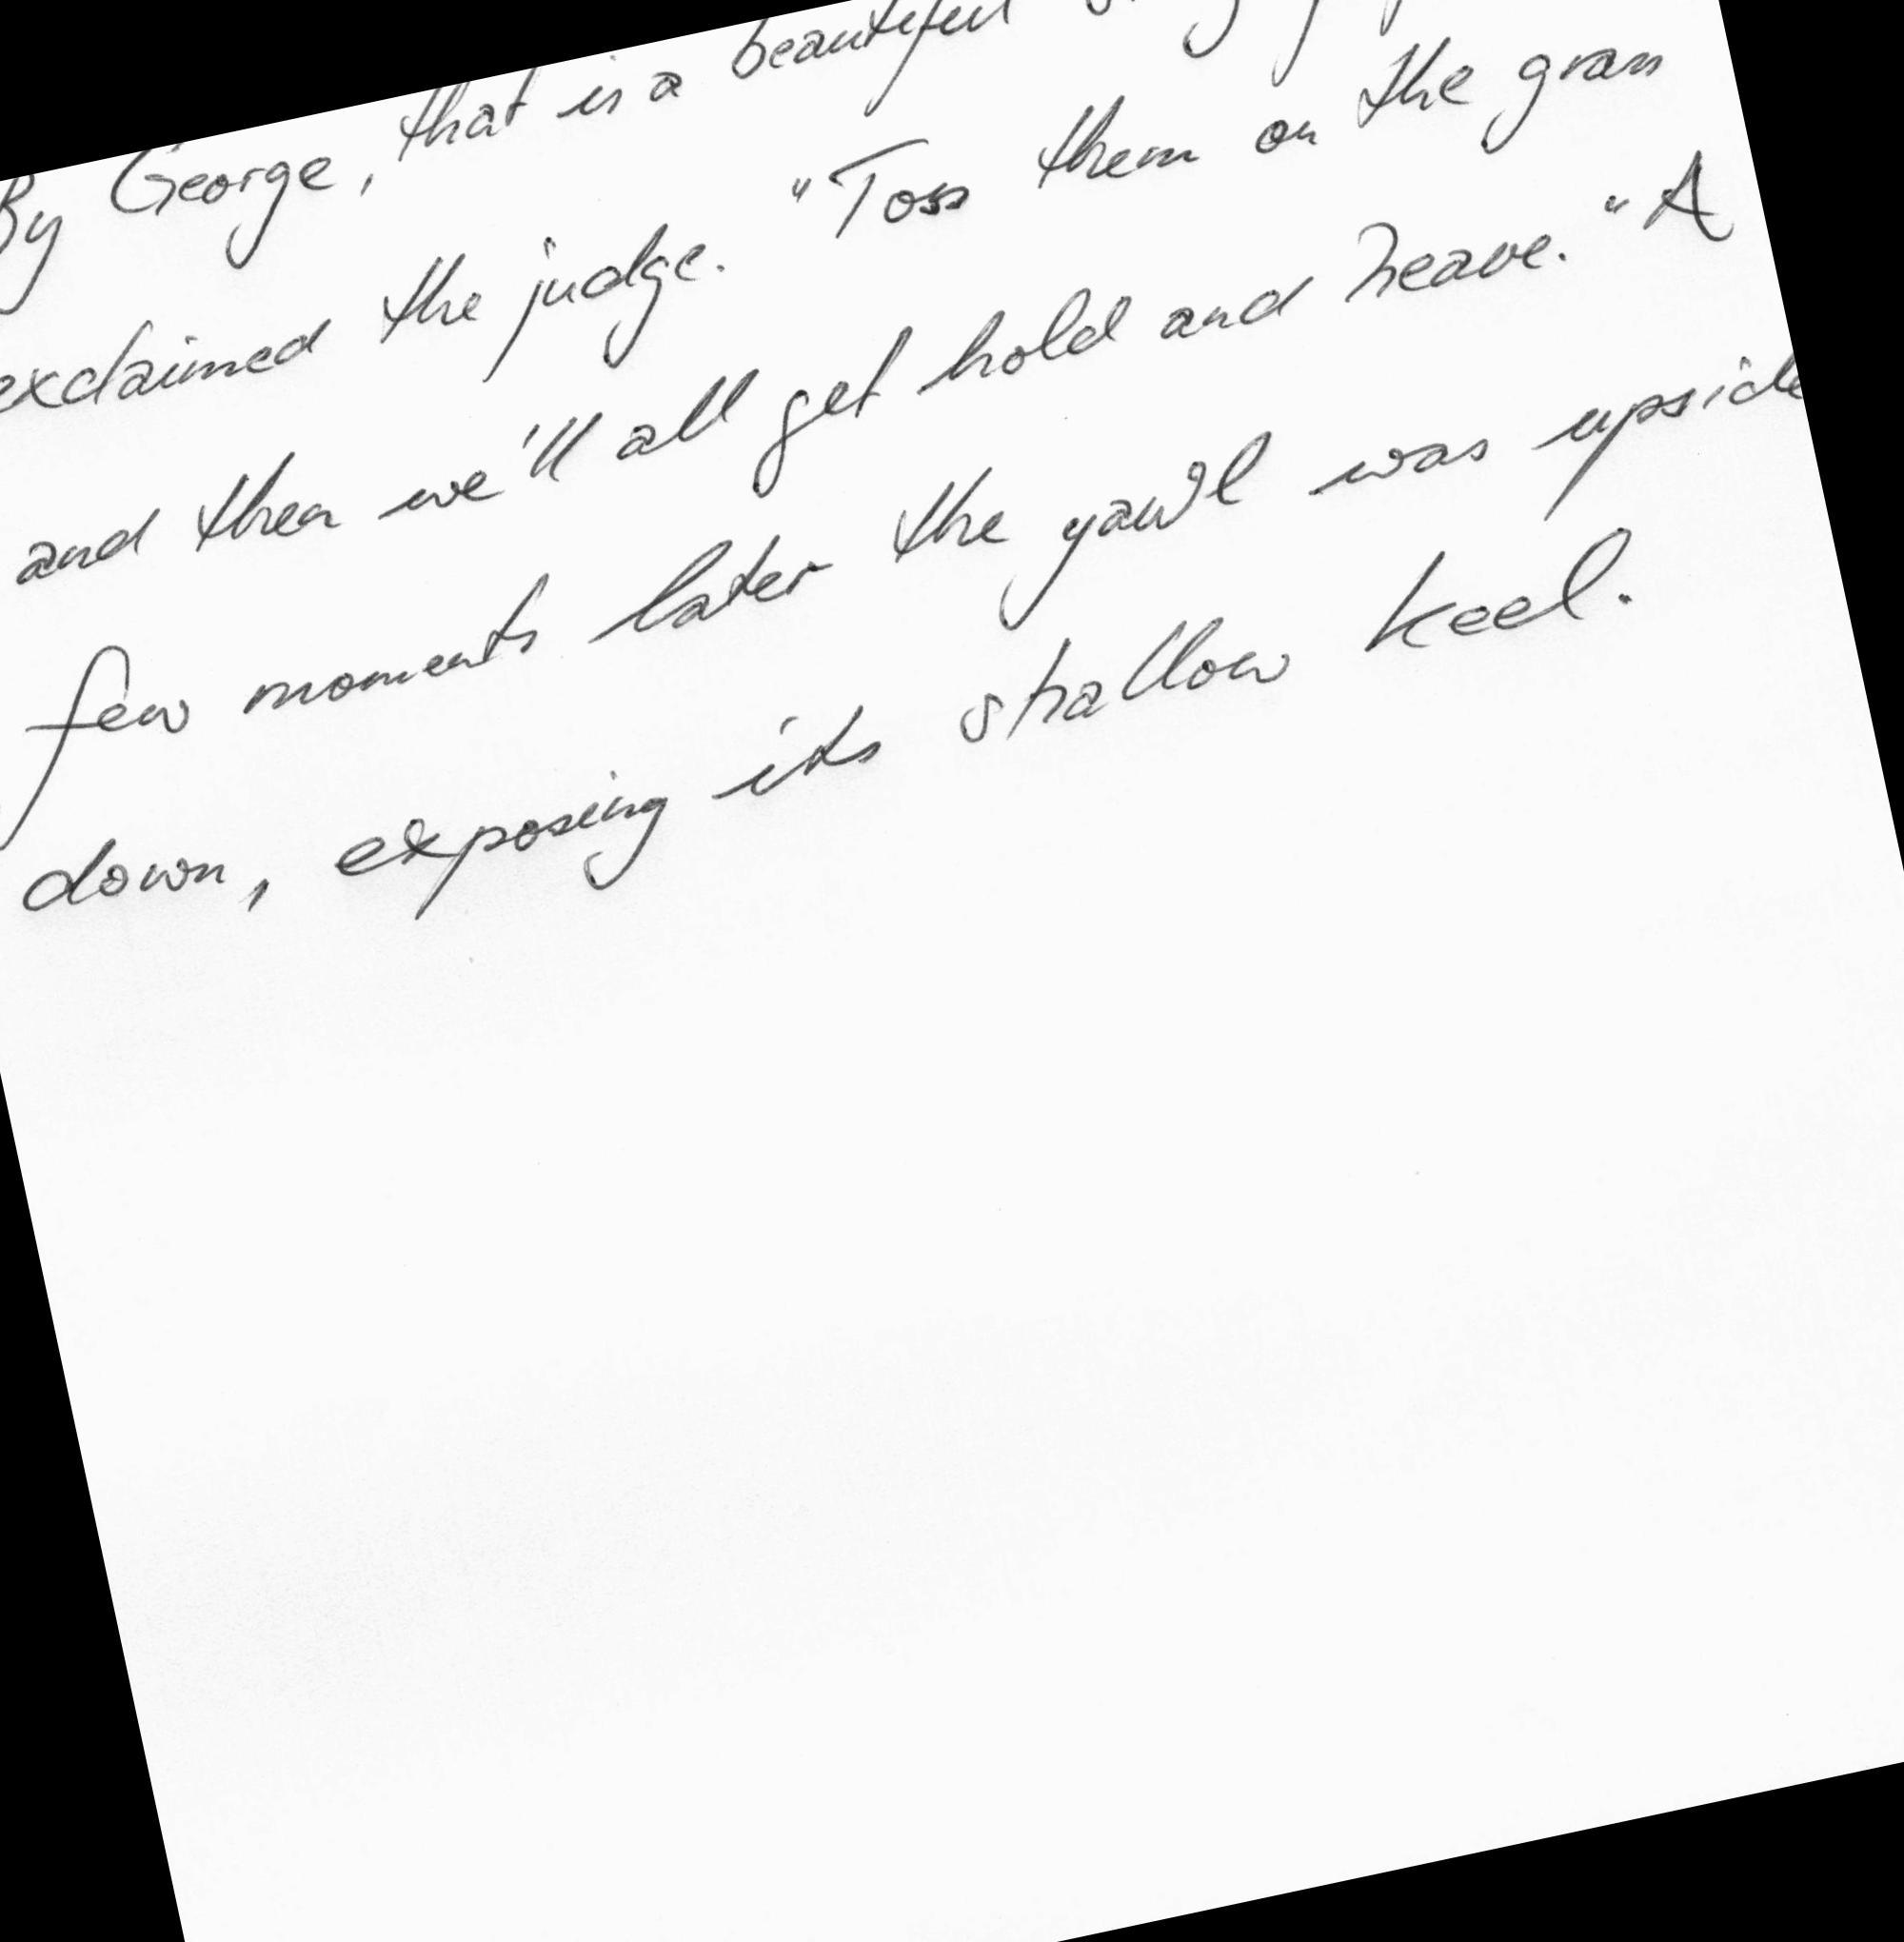 By George, that is a beautiful
exclaimed the judge. "Toss them on the grass
and then we'll all get hold and heave." A
few moments later the yawl was upside
down, exposing its shallow keel.